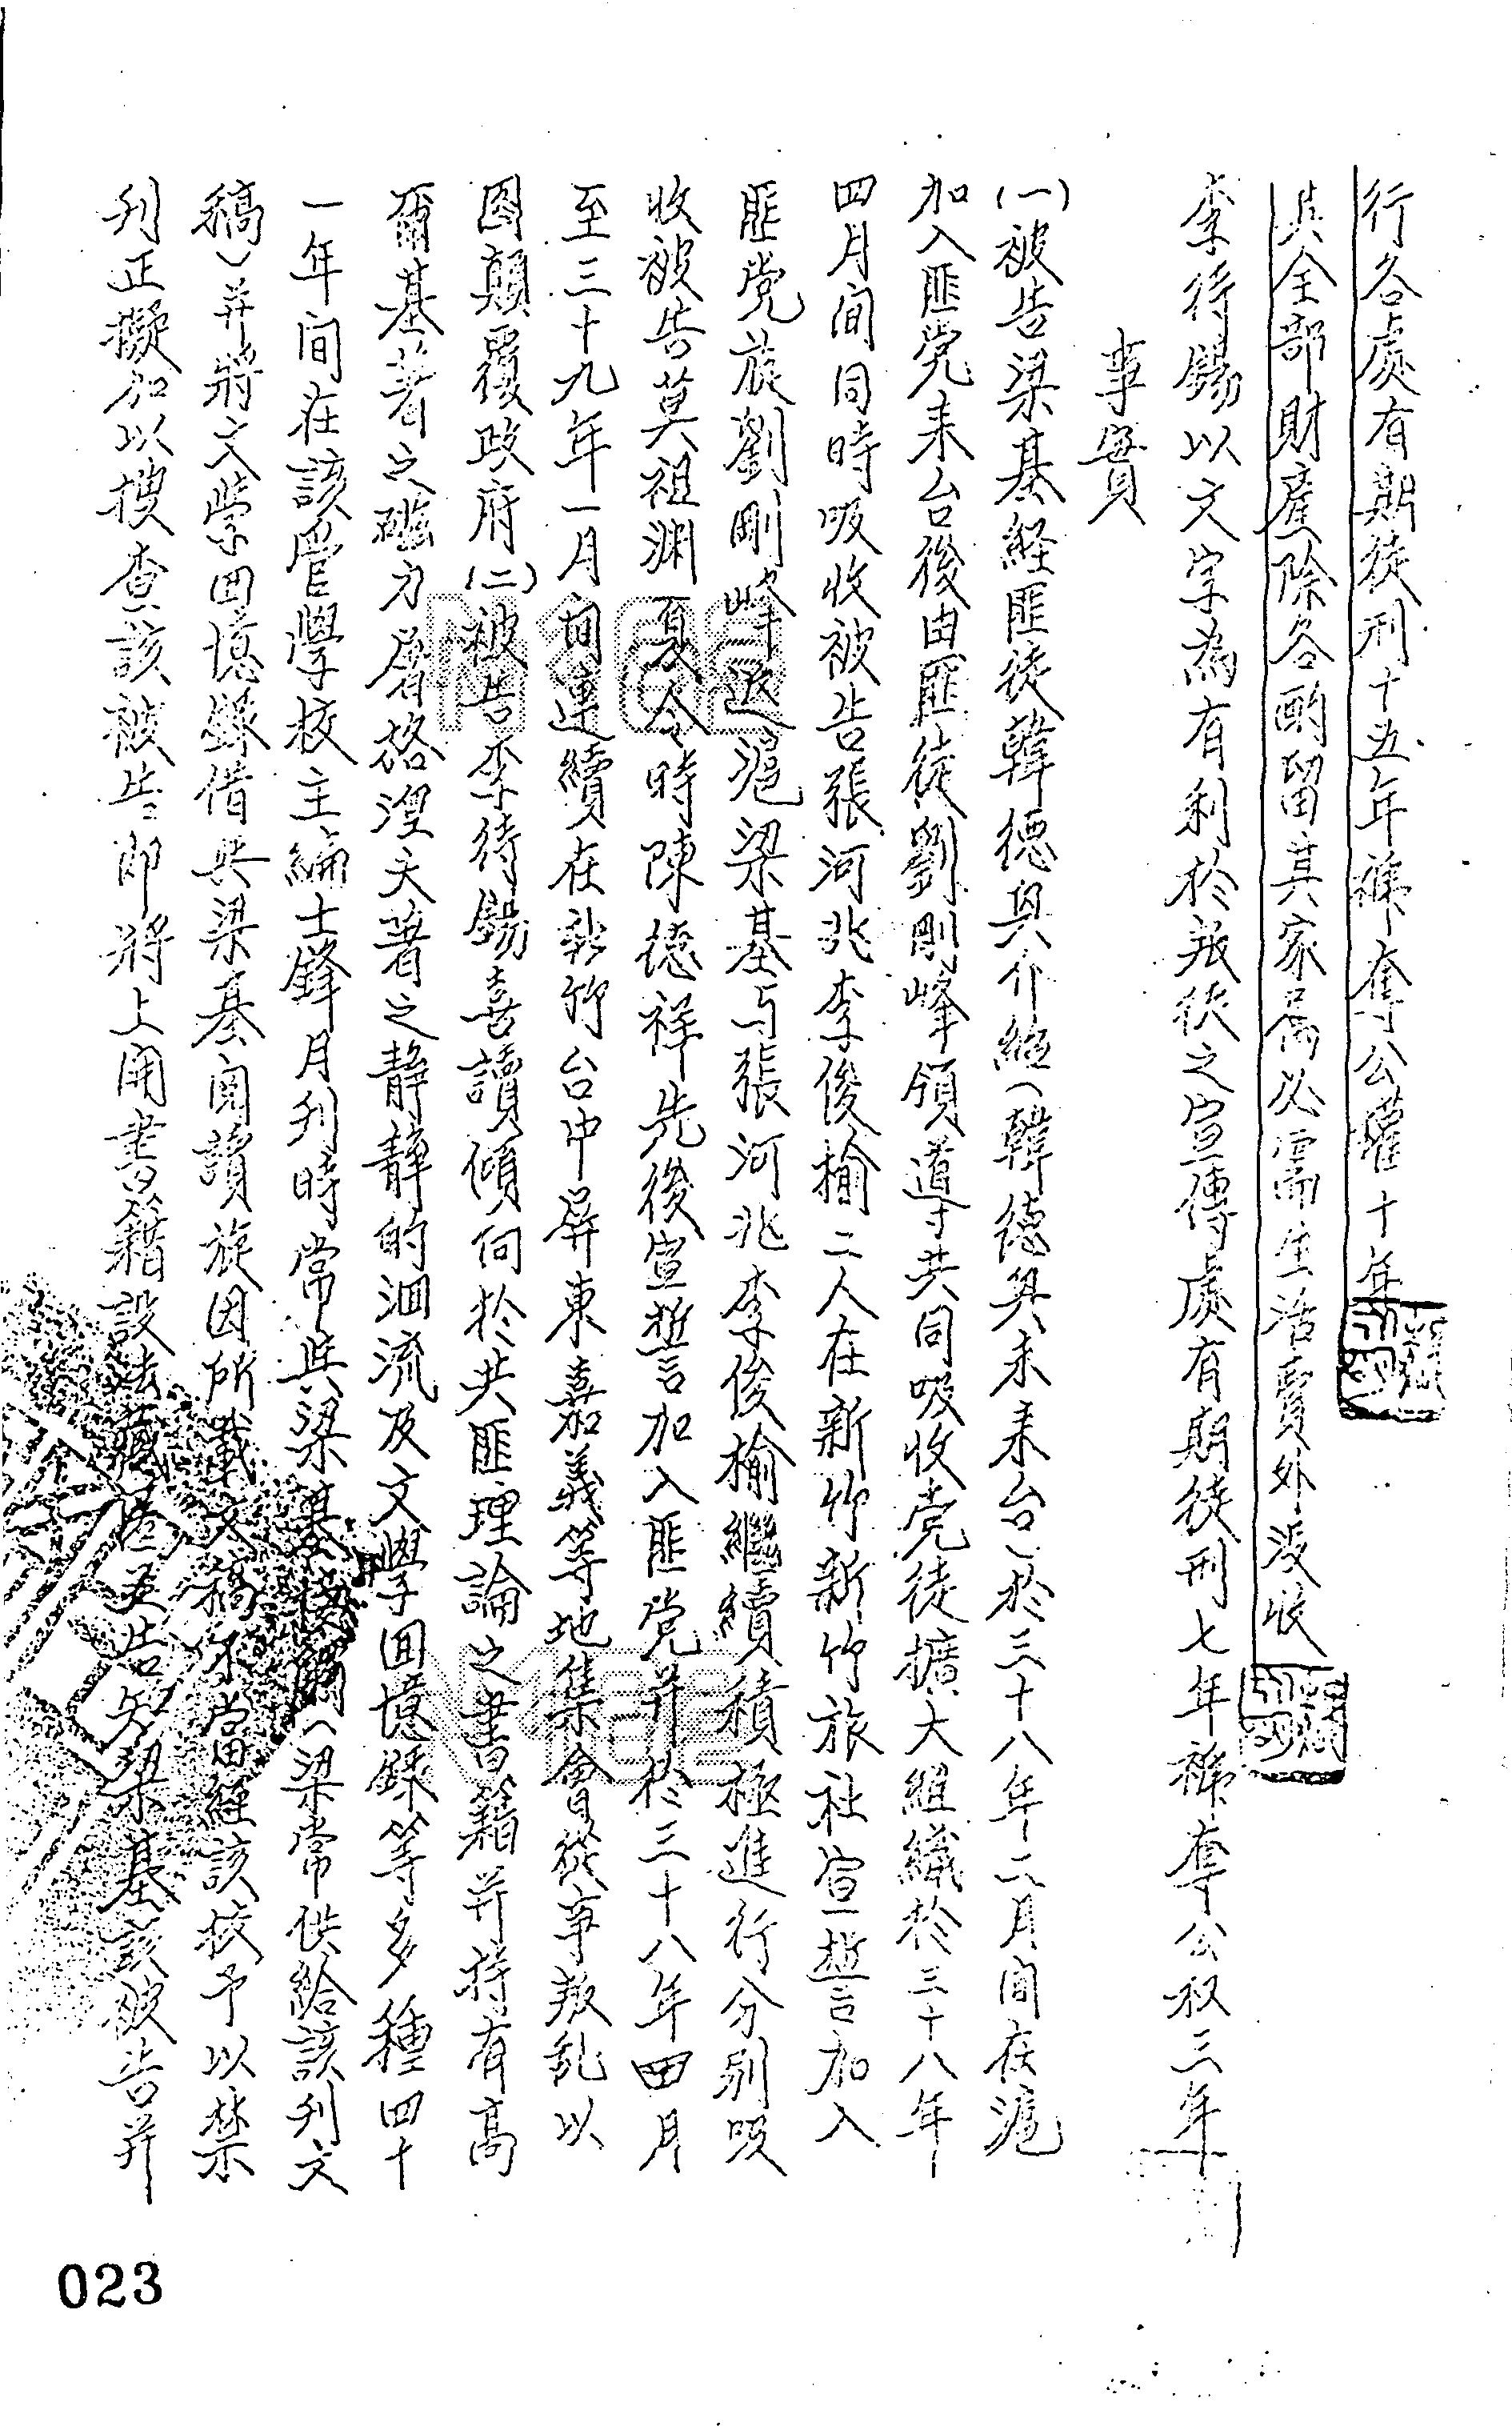 行各處有期徒刑十五年褫奪公權十年
其全部財產除各酌留其家屬必需生活費外沒收
李待錫以文字為有利於叛徒之宣傳處有期徒刑七年褫奪公权三年
事實
(一)被告梁基経匪徒韓德與介紹(韓德與未来台)於三十八年二月间在滬
加入匪党来台後由匪徒劉剛峰領導共同吸收党徒擴大組織於三十八年
四月间同時吸收被告張河兆李俊榆二人在新竹新竹旅社宣誓加入
匪党旋劉剛峰返滬梁基与張河兆李俊榆繼續積極進行分别吸
收被告莫祖渊夏令時陳德祥先後宣誓加入匪党并於三十八年四月
至三十九年一月间連續在新竹台中屏東嘉義等地集會從事叛乱以
图顛覆政府(二)被告李待錫喜讀傾向於共匪理論之書籍并持有高
爾基著之磁力屠格湼夫著之靜靜的洄流及文學回憶錄等多種四十
一年间在該管學校主編士鋒月刋時常與梁基接觸(梁常供給該刋文
稿)并將文學回憶錄借與梁基閱讀旋因所載文稿不當經該校予以禁
刋正擬加以搜查該被告即將上開書籍設法藏匿并告知梁基該被告并
023